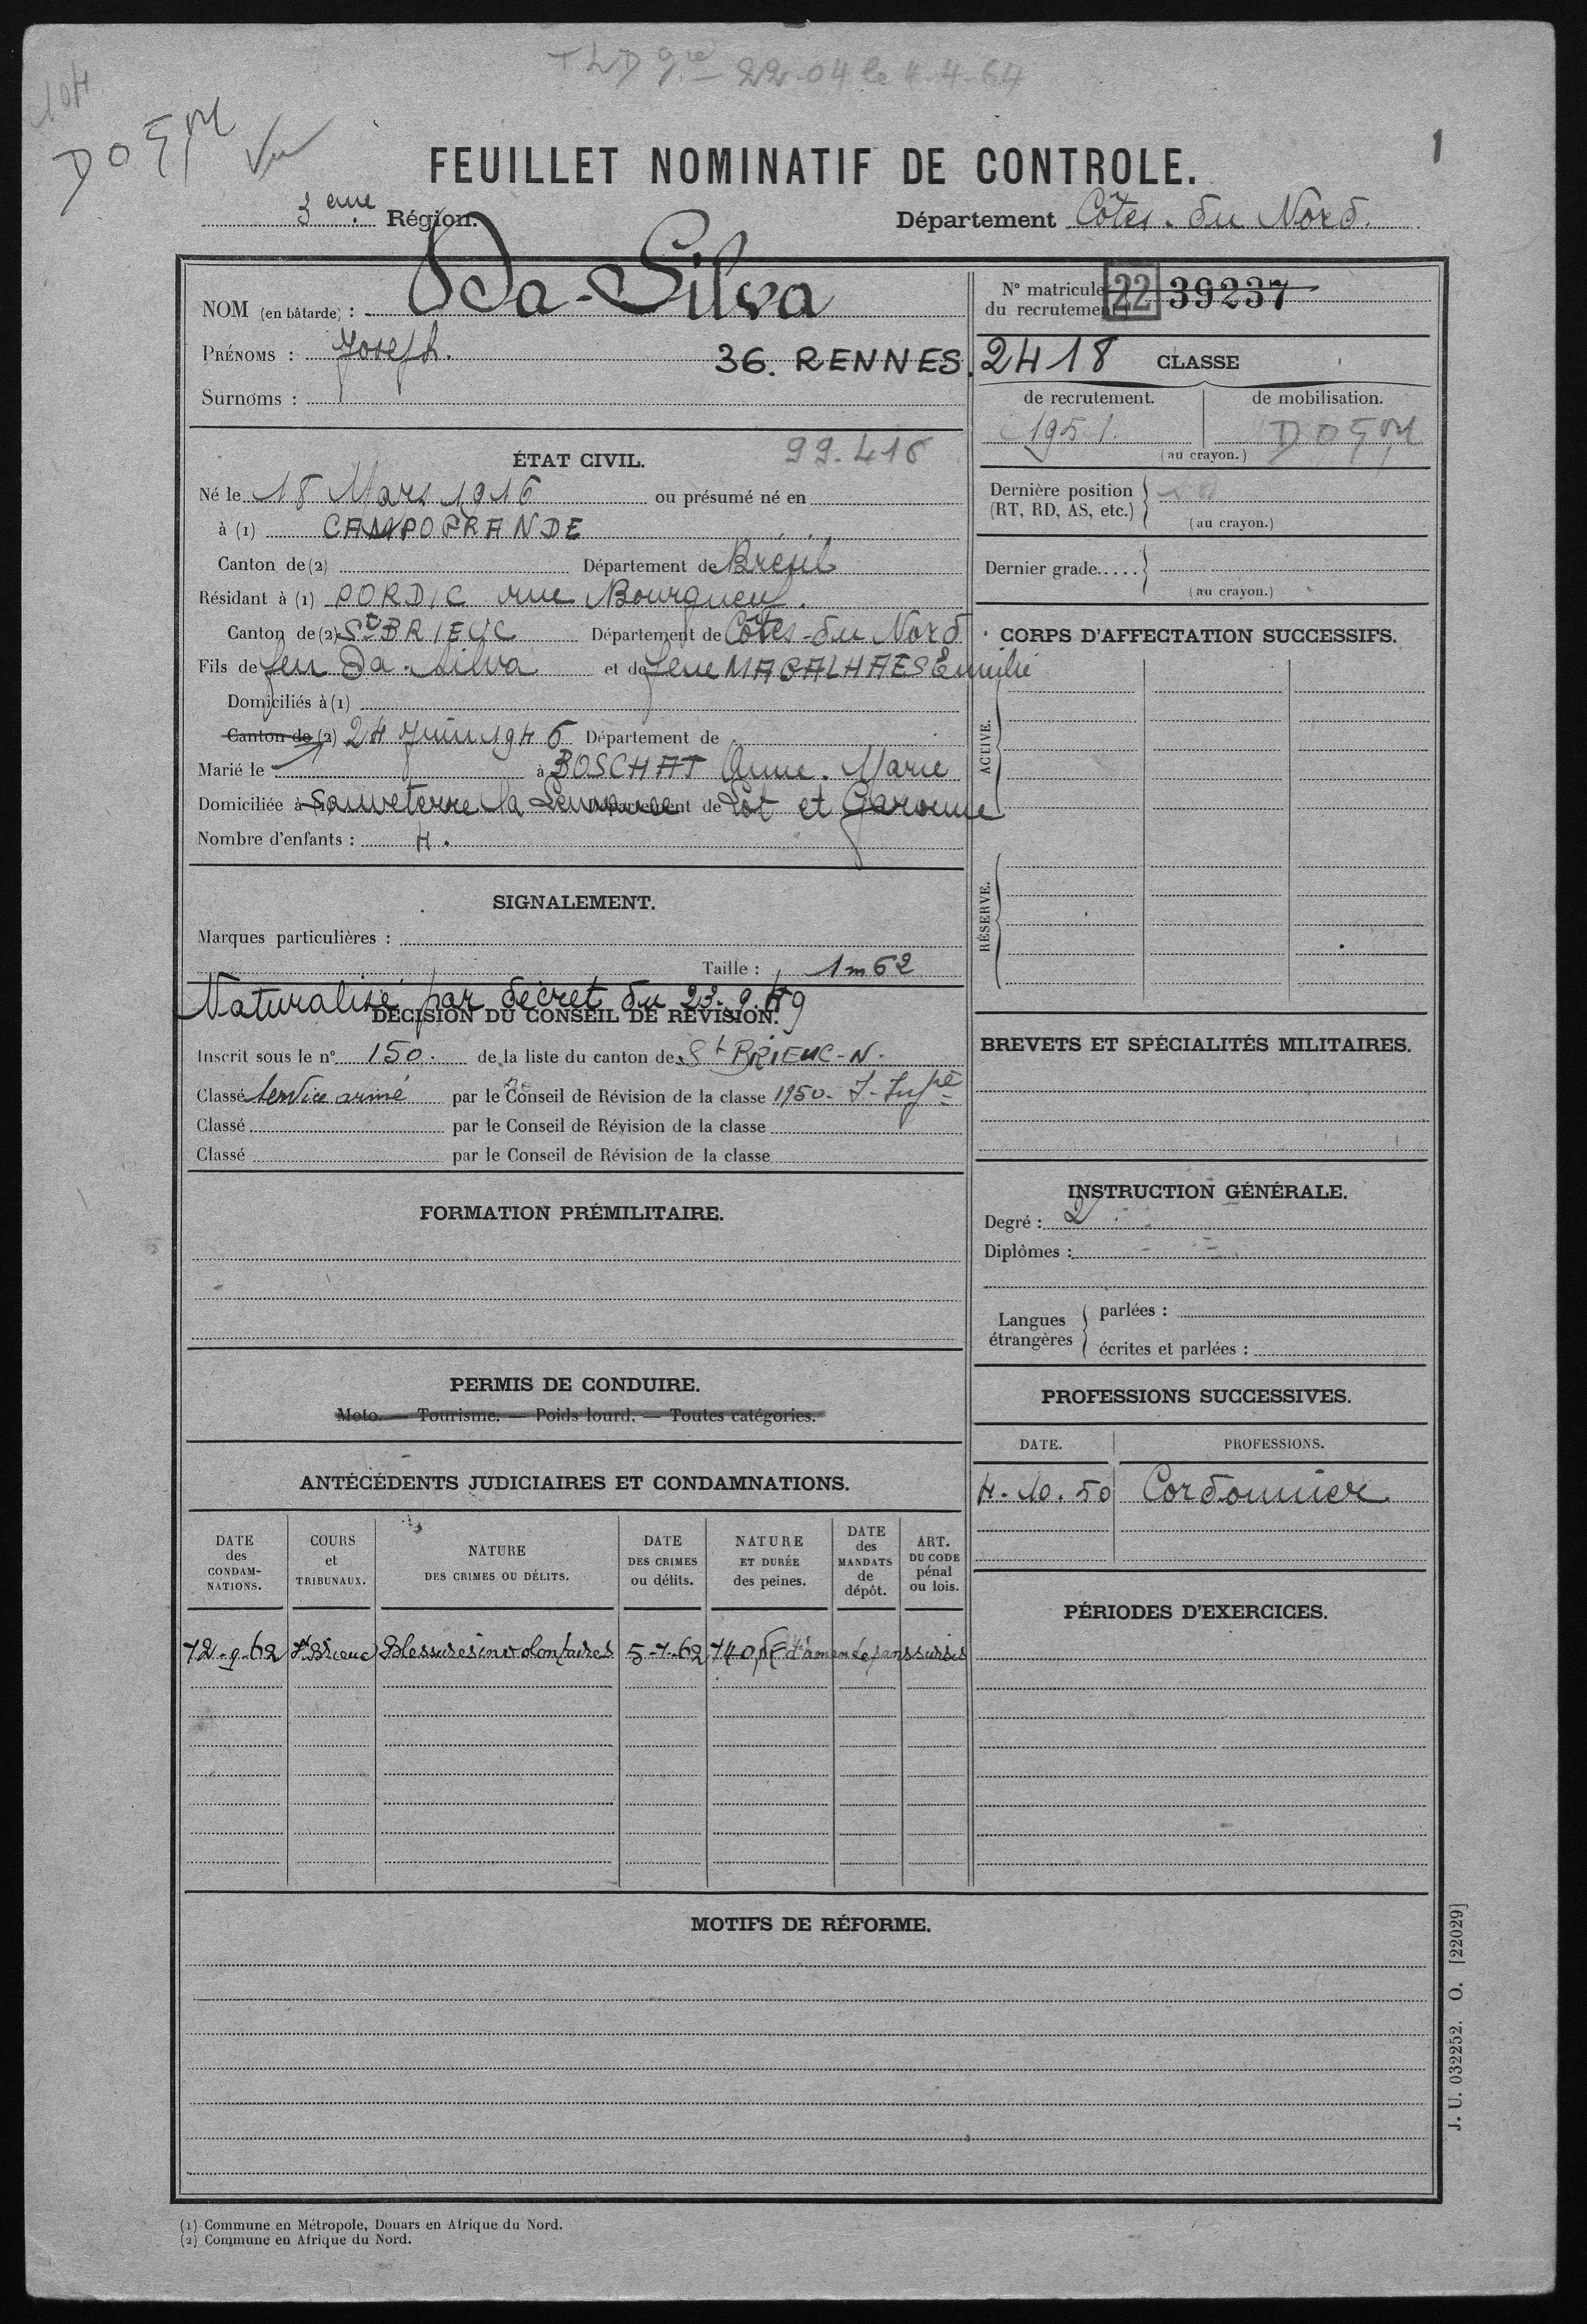 TLD gie 22-04 le 4-4-64
104
DOEM
Vu
1
FEUILLET NOMINATIF DE CONTROLE.
3eme Région.
Département Côtes-du Nord.
NOM (en bâtarde) : Da-Silva
PRÉNOMS : Joseph.
36. RENNES. 2418
Surnoms :
ÉTAT CIVIL.
99.416
Né le 18 Mars 1916 ou présumé né en
à (1) CAMPOGRANDE
Canton de (2) Département de Brésil
Résidant à (1) PORDIC rue Bourgneuf.
Canton de (2) St BRIEUC Département de Côtes-du Nord
Fils de feu Da-Silva et de feue MAGALHAES Emilie
Domiciliés à (1)
Canton de (2) 24 Juin 1946 Département de
Marié le à BOSCHAT Anne-Marie
Domiciliée à Sauveterre la Lemance Département de Lot et Garonne
Nombre d'enfants : 4.
SIGNALEMENT.
Marques particulières :
Taille : 1m62
Naturalisé par décret du 23.9.49
DÉCISION DU CONSEIL DE RÉVISION.
Inscrit sous le n° 150. de la liste du canton de St BRIEUC-N.
Classé Service armé par le Conseil de Révision de la classe 1950.
Classé par le Conseil de Révision de la classe
Classé par le Conseil de Révision de la classe
FORMATION PRÉMILITAIRE.
PERMIS DE CONDUIRE.
Moto. — Tourisme. — Poids lourd. — Toutes catégories.
ANTÉCÉDENTS JUDICIAIRES ET CONDAMNATIONS.
DATE des CONDAM-NATIONS.
COURS et TRIBUNAUX.
NATURE DES CRIMES OU DÉLITS.
DATE DES CRIMES ou délits.
NATURE ET DURÉE des peines.
DATE des MANDATS de dépôt.
ART. DU CODE pénal ou lois.
12-9-62 St Brieuc Blessures involontaires 5-7-62 140 NF d'amende sans sursis
N° matricule du recrutement 22 39237
CLASSE
de recrutement.
de mobilisation.
1951.
DOEM
(au crayon.)
Dernière position (RT, RD, AS, etc.)
(au crayon.)
Dernier grade.....
(au crayon.)
CORPS D'AFFECTATION SUCCESSIFS.
ACTIVE.
RÉSERVE.
BREVETS ET SPÉCIALITÉS MILITAIRES.
INSTRUCTION GÉNÉRALE.
Degré : 2
Diplômes :
Langues étrangères
parlées :
écrites et parlées :
PROFESSIONS SUCCESSIVES.
DATE. PROFESSIONS.
4.10.50 Cordonnier
PÉRIODES D'EXERCICES.
MOTIFS DE RÉFORME.
(1) Commune en Métropole, Douars en Afrique du Nord.
(2) Commune en Afrique du Nord.
J. U. 032252. O. [22029]